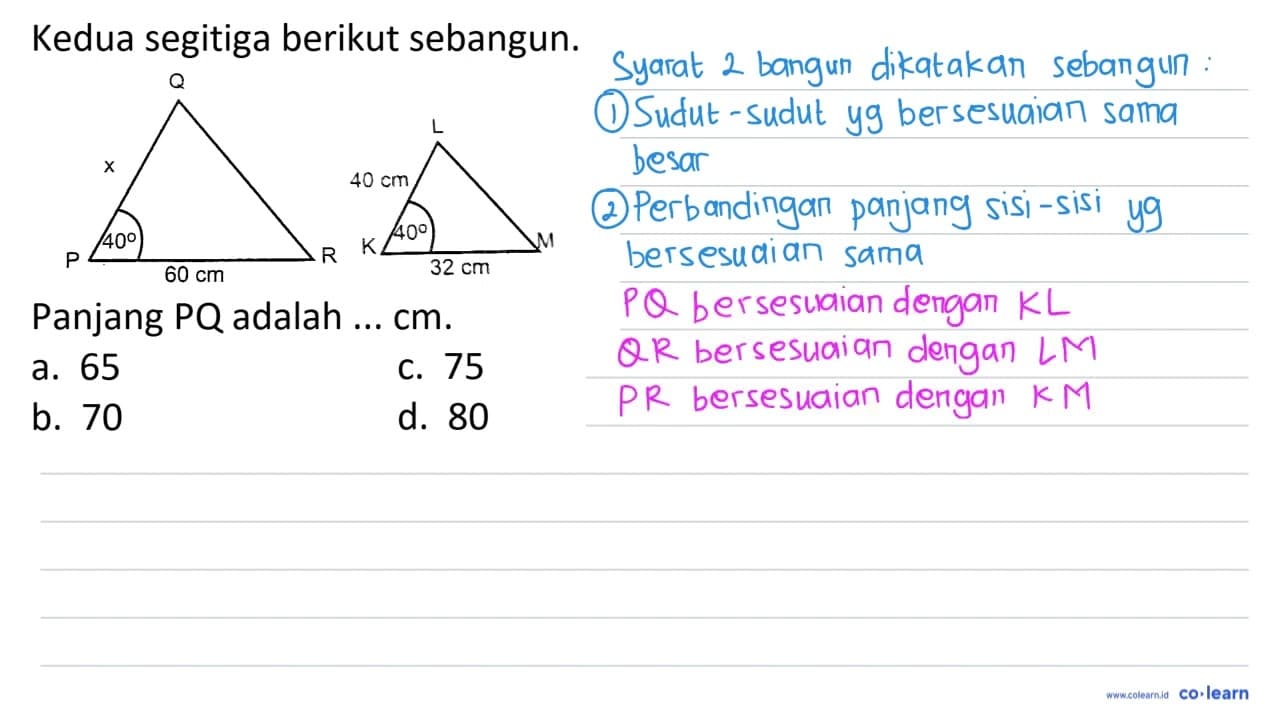 Kedua segitiga berikut sebangun.
Q
x
40°
P
R
60 cm
L
40 cm
40°
K
M
32 cm
Panjang PQ adalah ... cm.
a. 65
c. 75
b. 70
d. 80
Syarat 2 bangun dikatakan sebangun :
① Sudut-sudut yg bersesuaian sama
besar
② Perbandingan panjang sisi-sisi yg
bersesuaian sama
PQ bersesuaian dengan KL
QR bersesuaian dengan LM
PR bersesuaian dengan KM
www.colearn.id co·learn